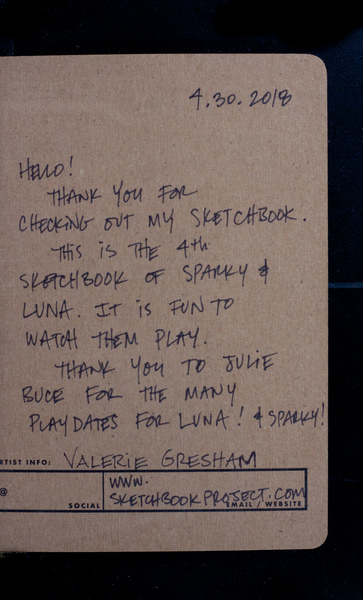 4.30.2018
HELLO!
THANK YOU FOR
CHECKING OUT MY SKETCHBOOK.
THIS IS THE 4th
SKETCHBOOK OF SPARKY &
LUNA. IT IS FUN TO
WATCH THEM PLAY.
THANK YOU TO JULIE
BUCE FOR THE MANY
PLAYDATES FOR LUNA! & SPARKY!
RTIST INFO: VALERIE GRESHAM
WWW.
@ SKETCHBOOKPROJECT.COM
SOCIAL EMAIL / WEBSITE